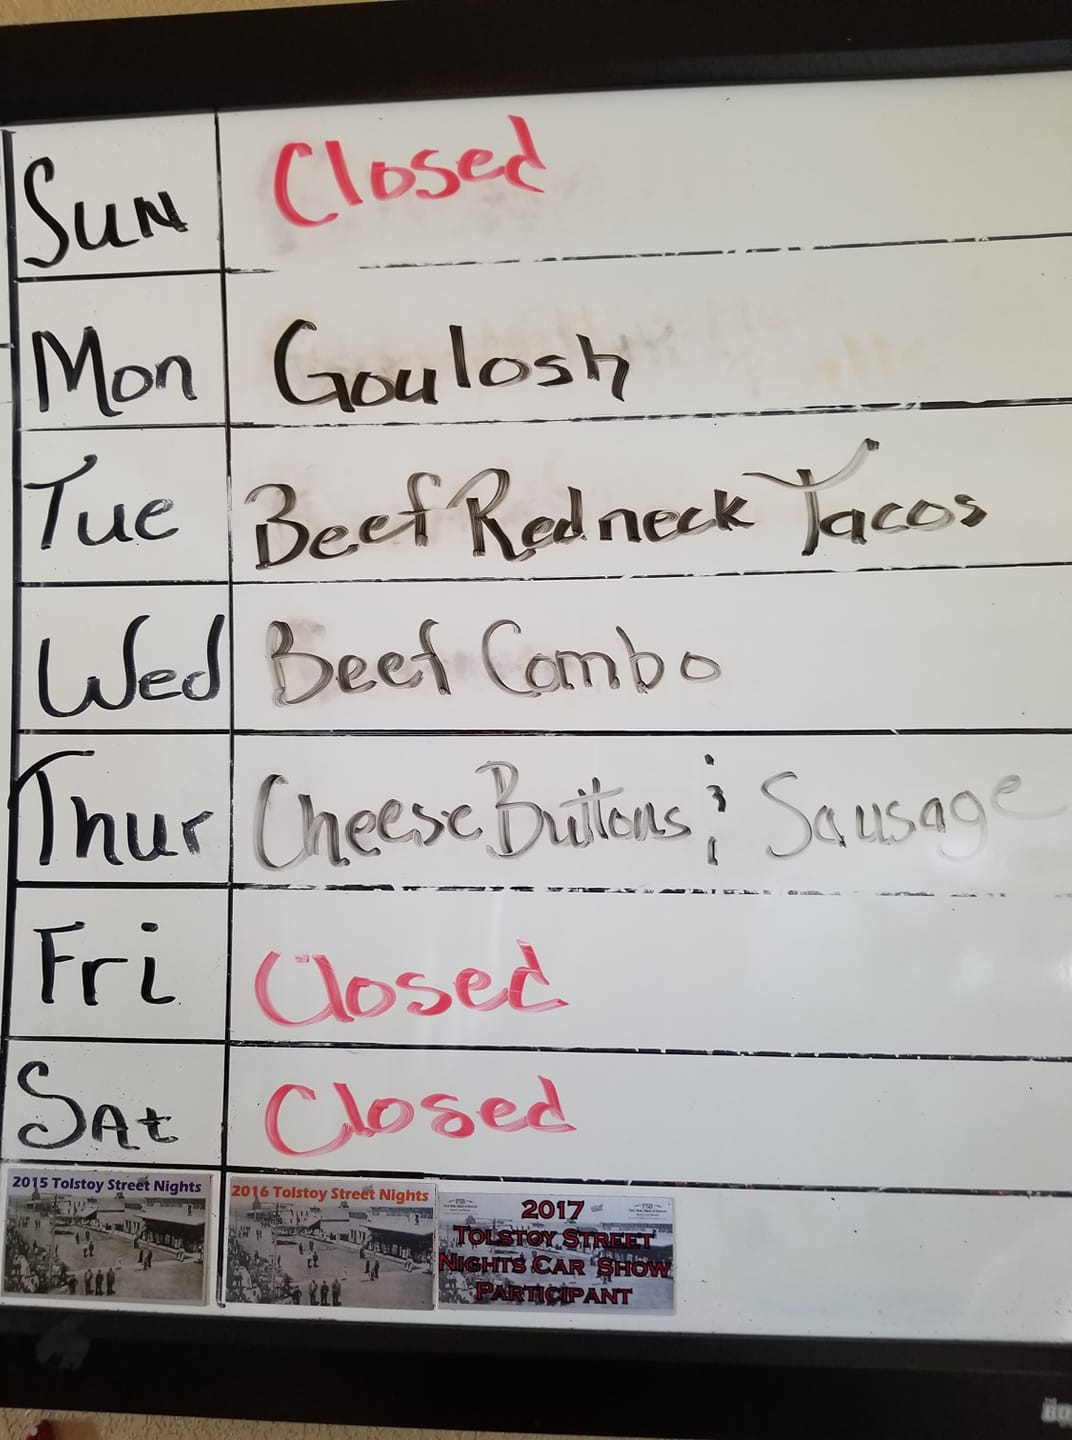 Sun Closed
Mon Goulosh
Tue Beef Redneck Tacos
Wed Beef Combo
Thur Cheese Buttons & Sausage
Fri Closed
Sat Closed
2015 Tolstoy Street Nights
2016 Tolstoy Street Nights
2017
Tolstoy Street
Nights Car Show
Participant